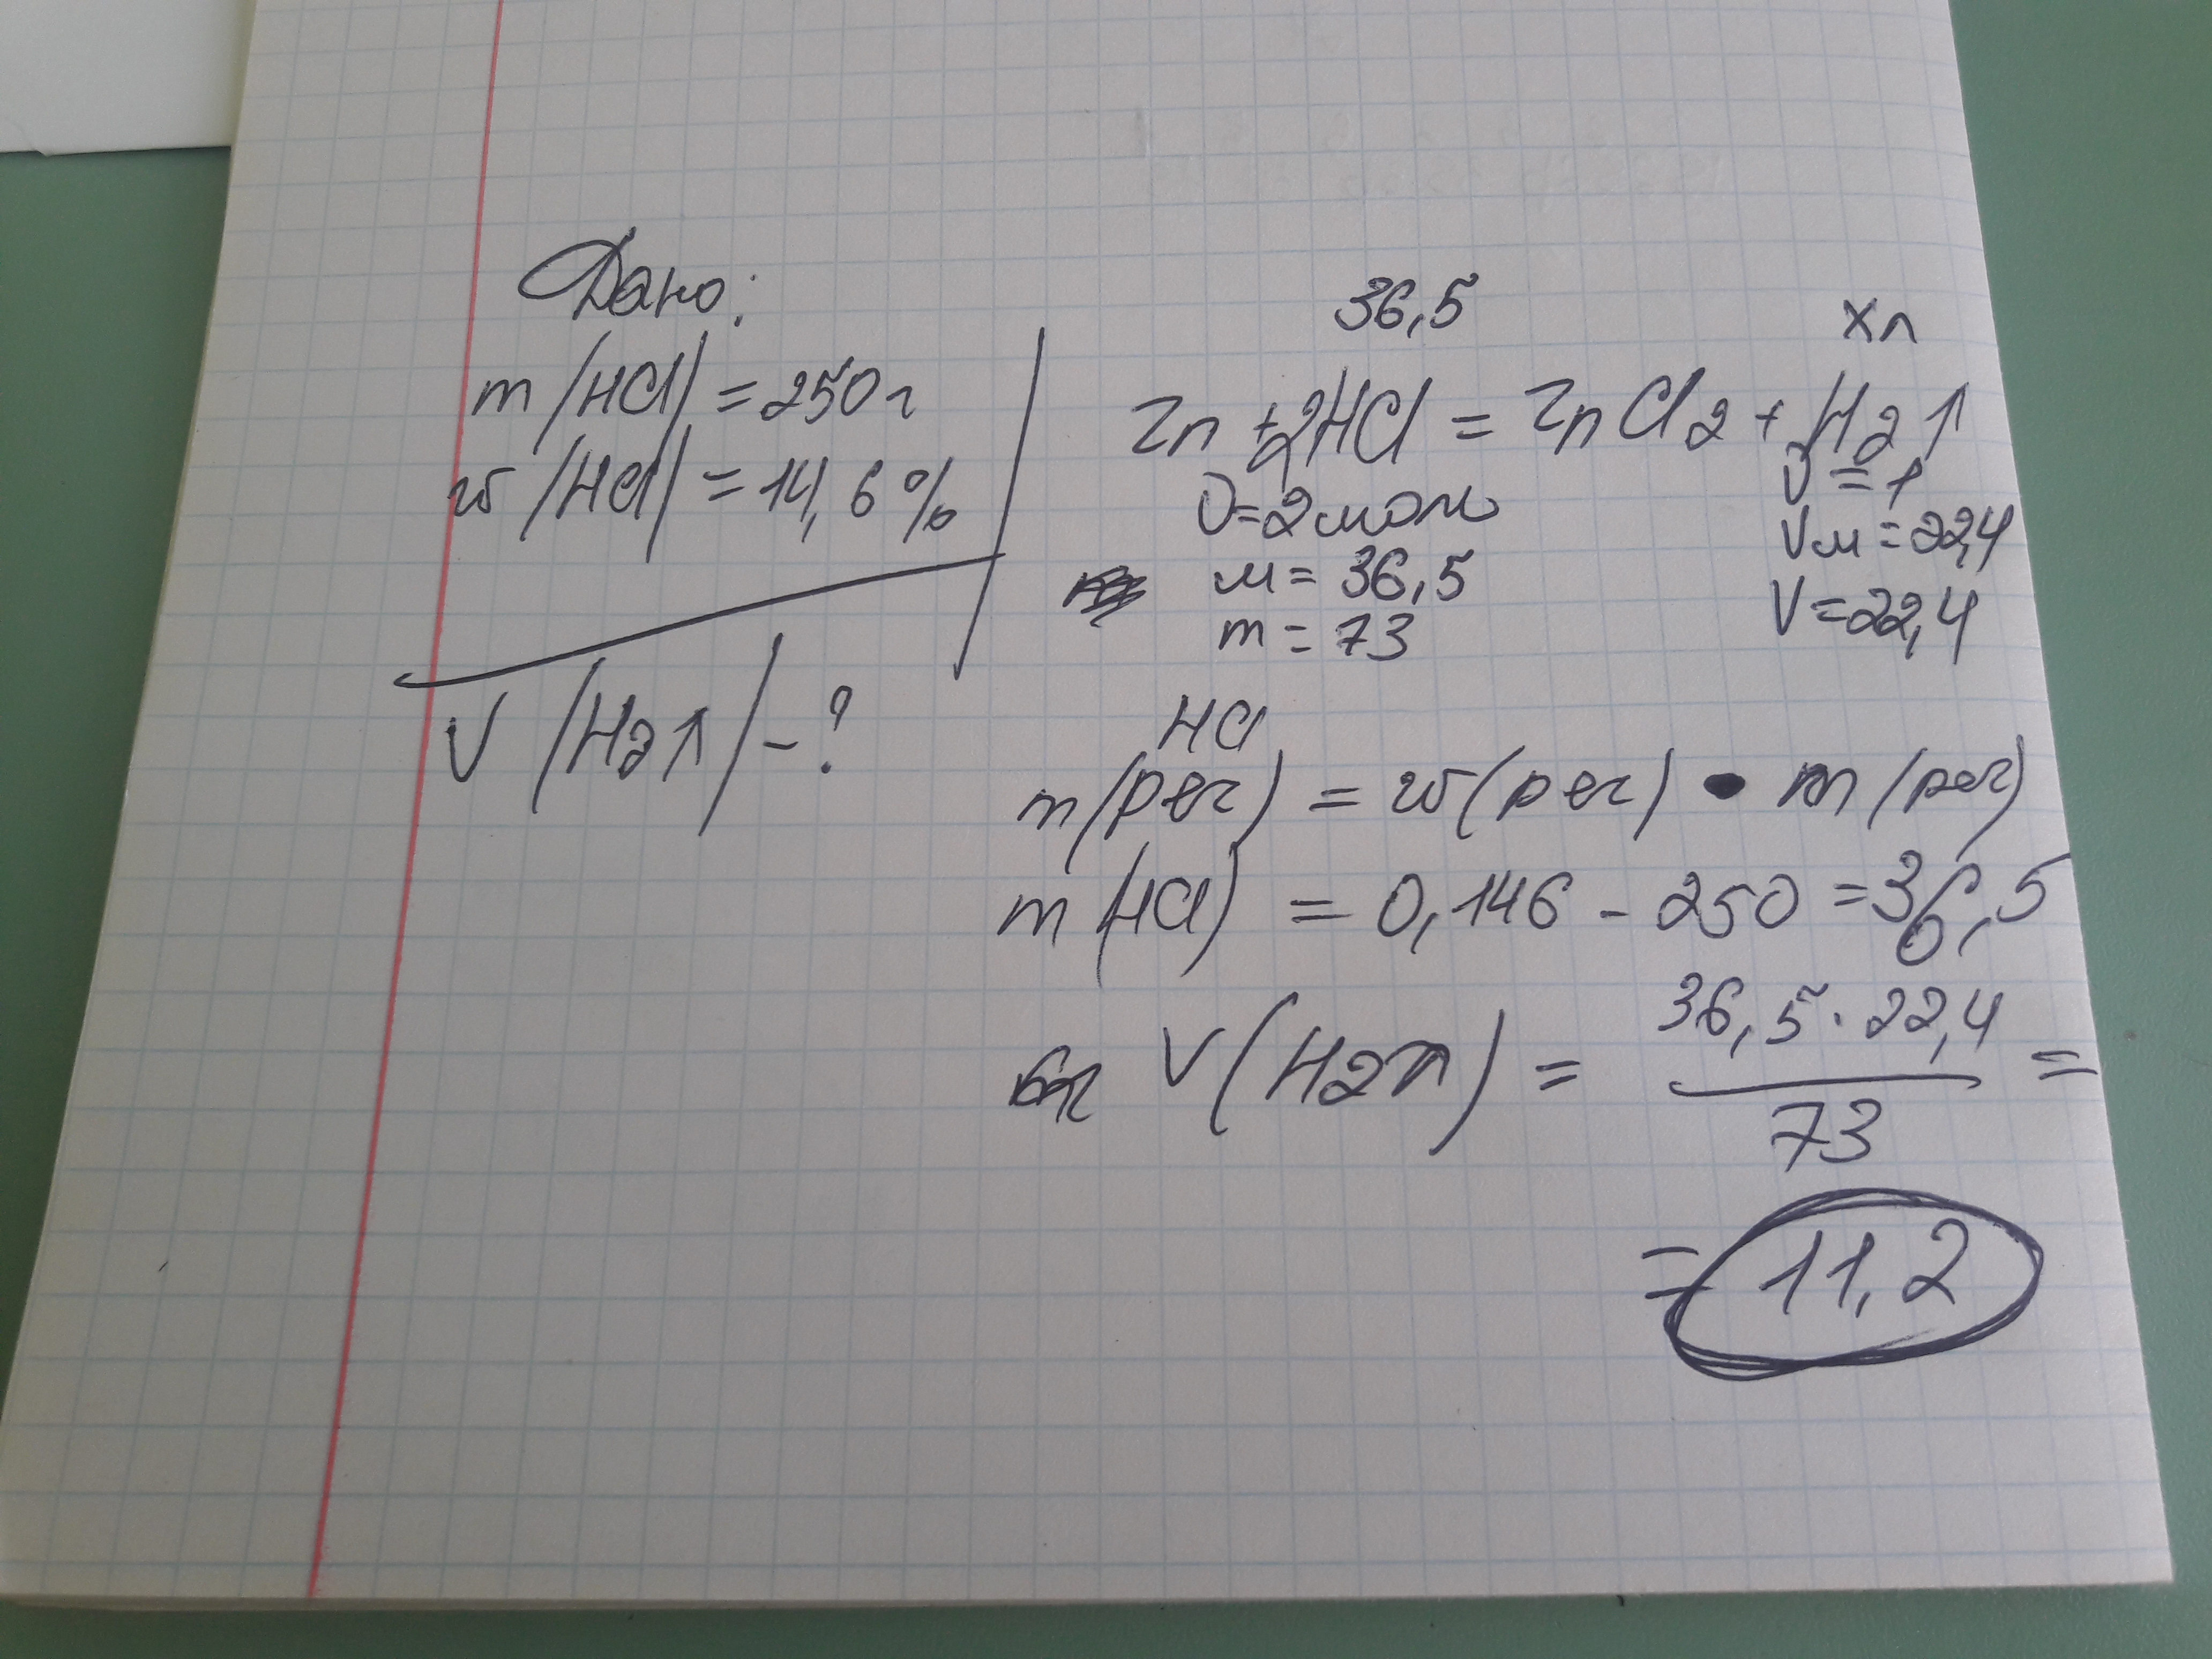 Дано:
m /HCl/ = 250г
w /HCl/ = 14,6%
V /H2↑/ - ?
36,5 xл
Zn + 2HCl = ZnCl2 + H2↑
υ=2моль υ=1
м = 36,5 Vм = 22,4
m = 73 V=22,4
HCl
m/рег) = w(рег) • m/рег)
m (HCl) = 0,146 - 250 = 36,5
V(H2↑) = 36,5 · 22,4 =
73
= 11,2